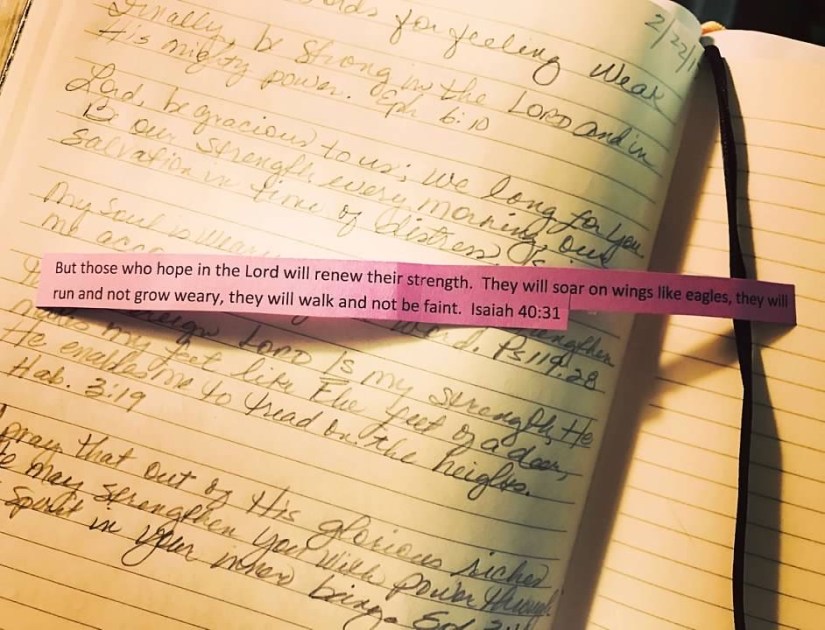 for feeling Weak
2/22/1
Finally, be strong in the LORD and in
His mighty power. Eph 6:10
Lord, be gracious to us; we long for you.
B our strength every morning, our
salvation in time of distress Is
My soul is weary
me acco
But those who hope in the Lord will renew their strength. They will soar on wings like eagles, they will
run and not grow weary, they will walk and not be faint. Isaiah 40:31
strengthen
word. Ps 119:28
LORD is my strength, He
my feet like the feet of a deer,
He enables me to tread on the heights.
Hab. 3:19
pray that out of His glorious riches
He may strengthen you with power through
Spirit in your inner being.